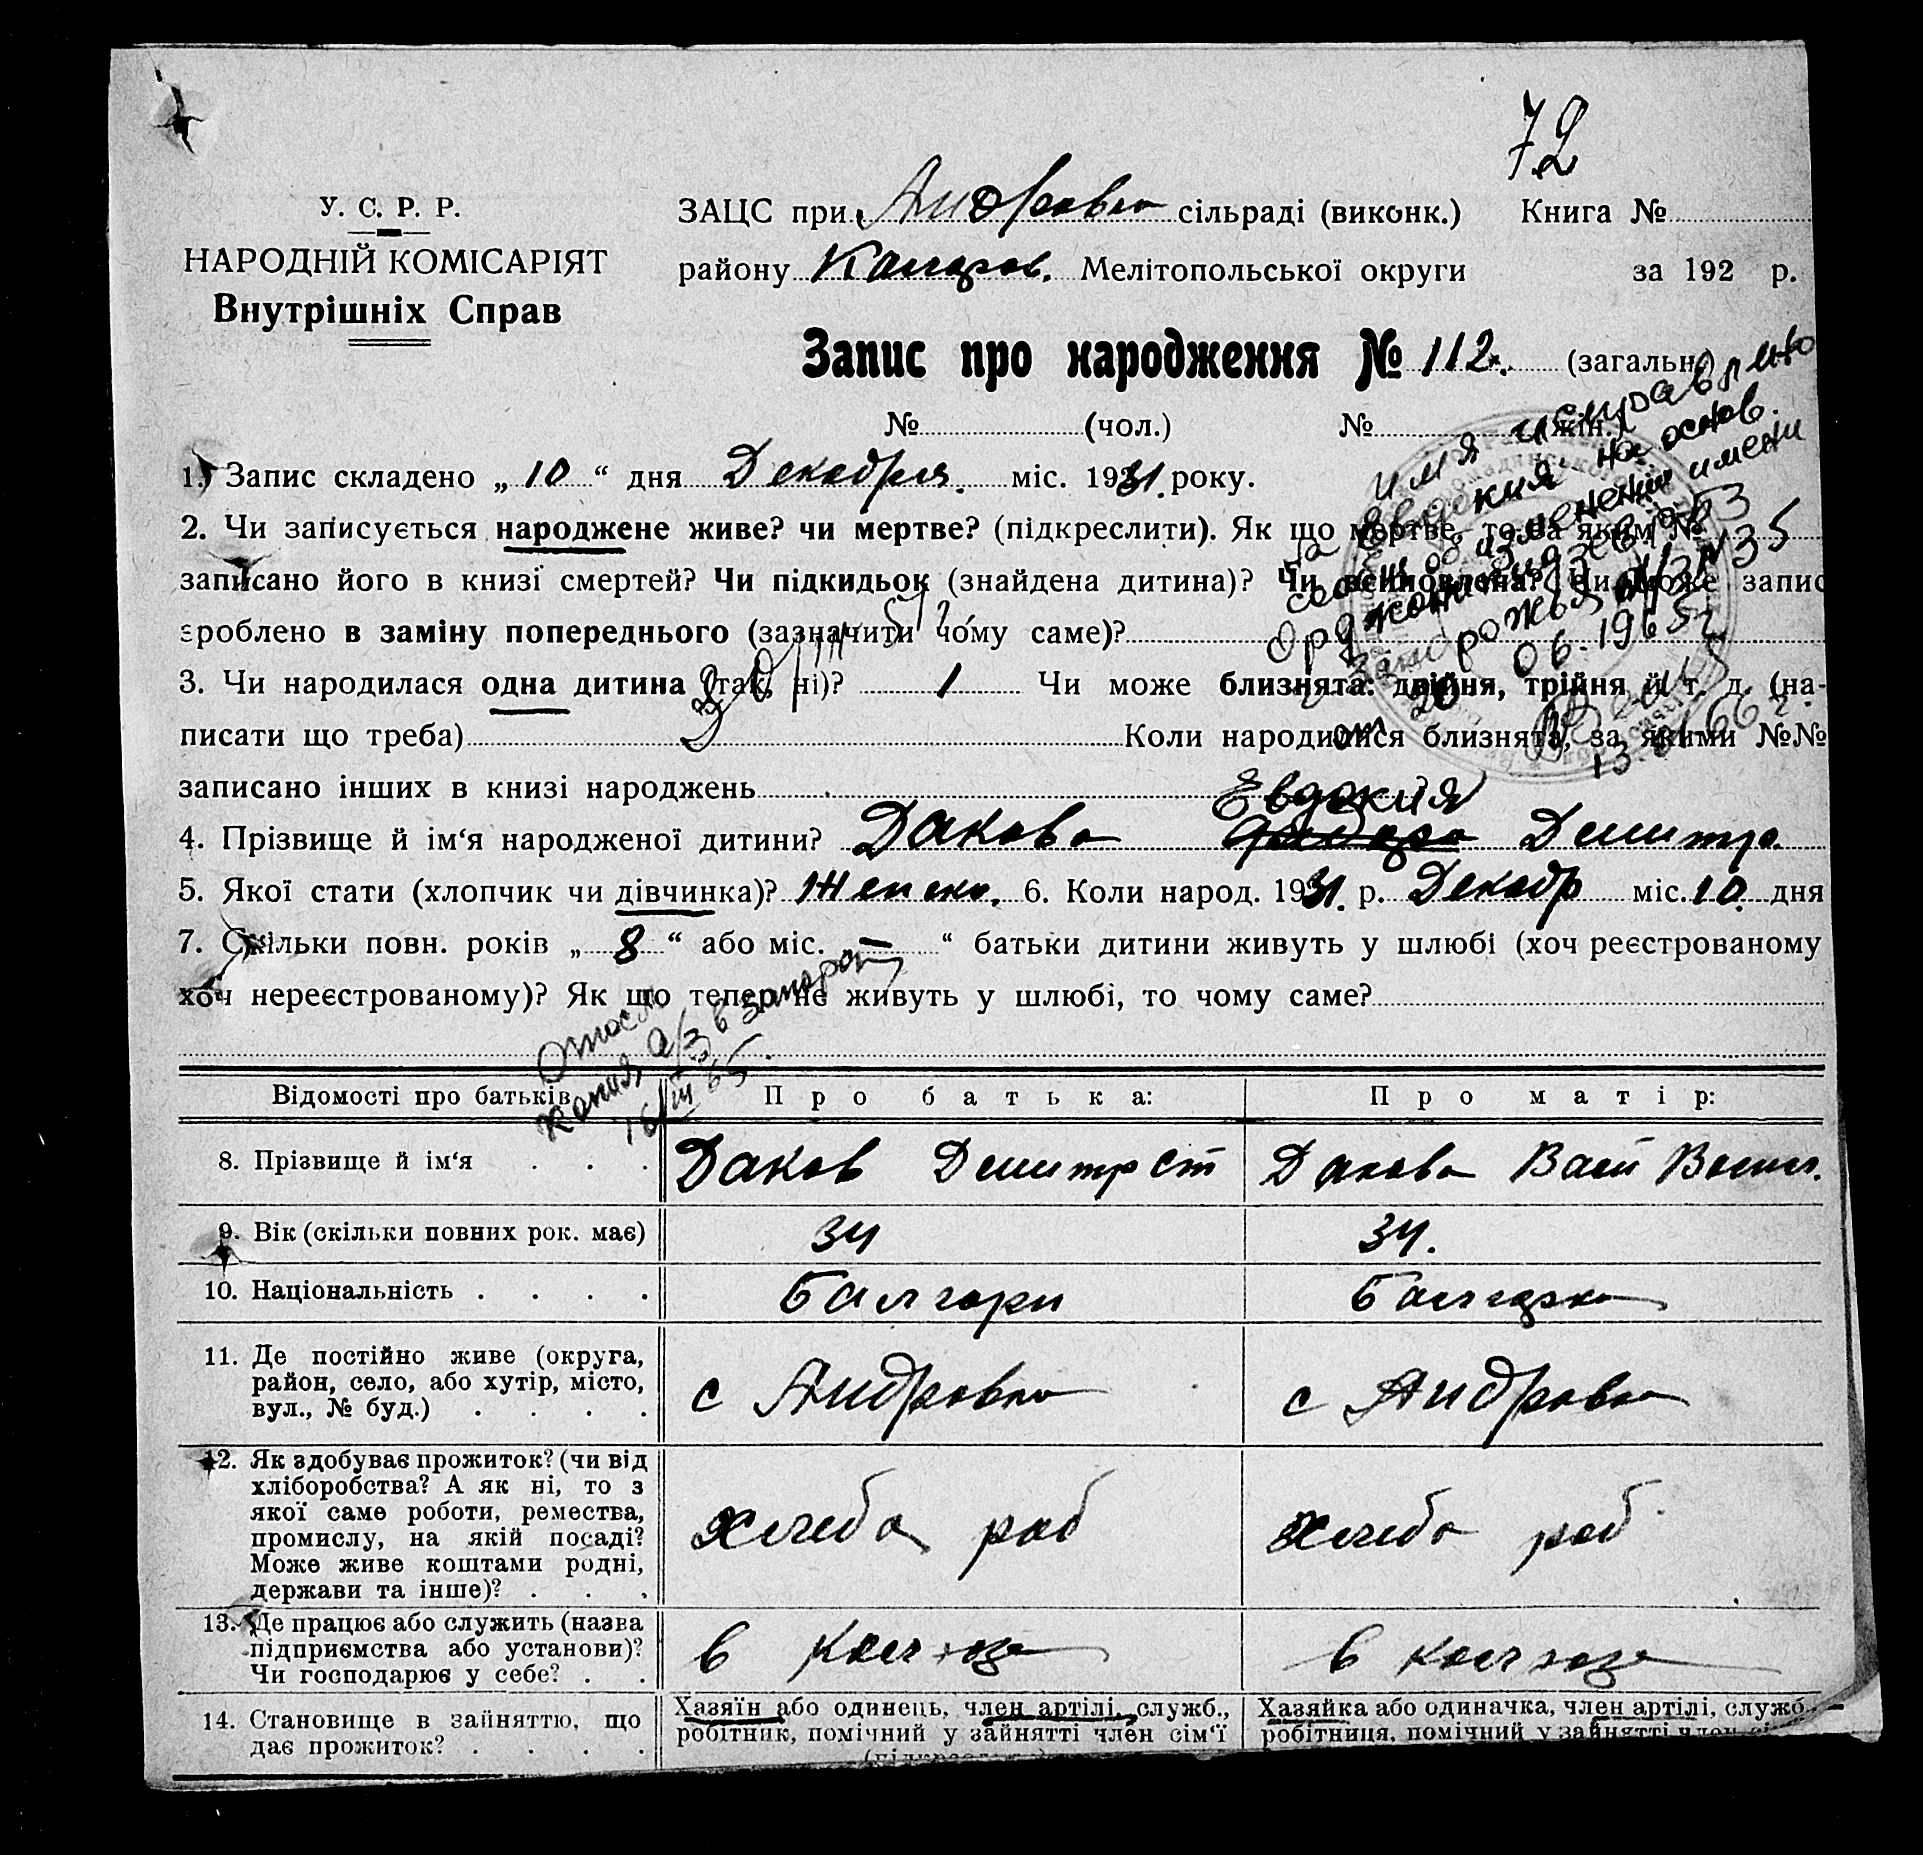 72
У. С. Р. Р.
НАРОДНІЙ КОМІСАРІЯТ
Внутрішніх Справ
ЗАЦС при Андровка сільраді (виконк.) Книга №
району Мелітопольської округи за 192 р.
Запис про народження № 112. (загальн.)
№ (чол.) № (жін.)
имя исправлено
на Евдокия на основ.
имени
Запорожья
20 06. 1965 г.
1. Запис складено „ 10 “ дня Декабря. міс. 1931. року.
2. Чи записується народжене живе? чи мертве? (підкреслити). Як що мертве, то за яким №
записано його в книзі смертей? Чи підкидьок (знайдена дитина)? Чи всиновлена? Чи може запис
зроблено в заміну попереднього (зазначити чому саме)?
3. Чи народилася одна дитина (так, ні)? 1 Чи може близнята: двійня, трійня й т. д. (на-
писати що треба) Коли народилися близнята, за якими №№
записано інших в книзі народжень
Евдокия
4. Прізвище й ім‘я народженої дитини? Дакова Дмитр.
5. Якої стати (хлопчик чи дівчинка)? Женско. 6. Коли народ. 1931. р. Декабр міс. 10. дня
7. Скільки повн. років „ 8 “ або міс. „ — “ батьки дитини живуть у шлюбі (хоч реєстрованому
хоч нереєстрованому)? Як що тепер не живуть у шлюбі, то чому саме?
копия а/з в Запорож
16/III 65.
Відомості про батьків Про батька: Про матір:
8. Прізвище й ім‘я . . . Даков Дмитр Ст Дакова Вас
9. Вік (скільки повних рок. має) 34 34.
10. Національність . . . . Балгари Балгарка
11. Де постійно живе (округа,
район, село, або хутір, місто,
вул., № буд.) . . . . с Андровка с Андровка
12. Як здобуває прожиток? (чи від
хліборобства? А як ні, то з
якої саме роботи, ремества,
промислу, на якій посаді?
Може живе коштами родні,
держави та інше)? . . . Хлебо роб Хлебо роб
13. Де працює або служить (назва
підприємства або установи)?
Чи господарює у себе? . . в колхозе в колхозе
14. Становище в зайняттю, що
дає прожиток? . . . .
Хазяїн або одинець, член артілі, служб.,
робітник, помічний у зайнятті член сім‘ї
Хазяйка або одиначка, член артілі, служб.,
робітниця, помічний у зайнятті член